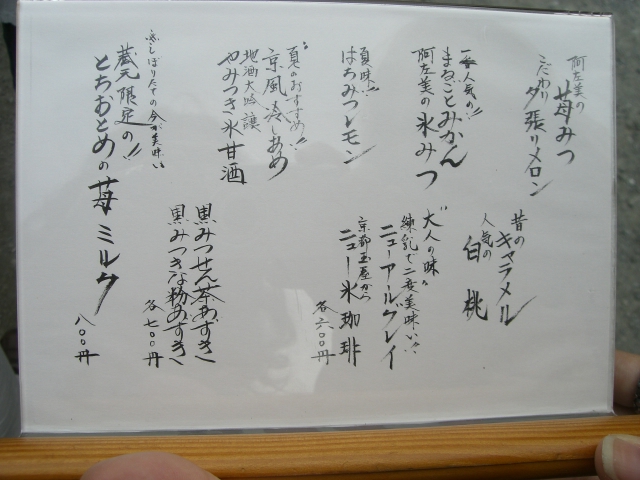 阿左美の
苺みつ
こだわり
夕張りメロン
一番人気の!!
まるごとみかん
阿左美の氷みつ
夏味!!
はちみつレモン
夏のおすすめ!!
京風冷しあめ
地酒大吟醸
やみつき氷甘酒
蒸しぼりたての今が美味い
蔵元限定の!!
とちおとめの苺ミルク
八〇〇円
昔の
キャラメル
人気の
白桃
"大人の味"
練乳で二度美味い!!
ニューアールグレイ
京都玉屋から
ニュー氷珈琲
各六〇〇円
黒みつせん茶あずきへ
黒みつきな粉あずきへ
各七〇〇円